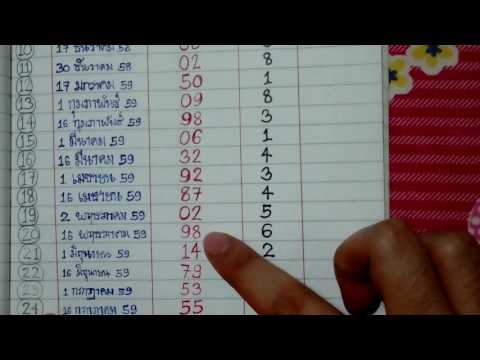 10 17 ธันวาคม 58
11 30 ธันวาคม 58 02 8
12 17 มกราคม 59 50 1
13 1 กุมภาพันธ์ 59 09 8
14 16 กุมภาพันธ์ 59 98 3
15 1 มีนาคม 59 06 1
16 16 มีนาคม 59 32 4
17 1 เมษายน 59 92 3
18 16 เมษายน 59 87 4
19 2 พฤษภาคม 59 02 5
20 16 พฤษภาคม 59 98 6
21 1 มิถุนายน 59 14 2
22 16 มิถุนายน 59 79
23 1 กรกฎาคม 59 53
24 16 กรกฎาคม 59 55